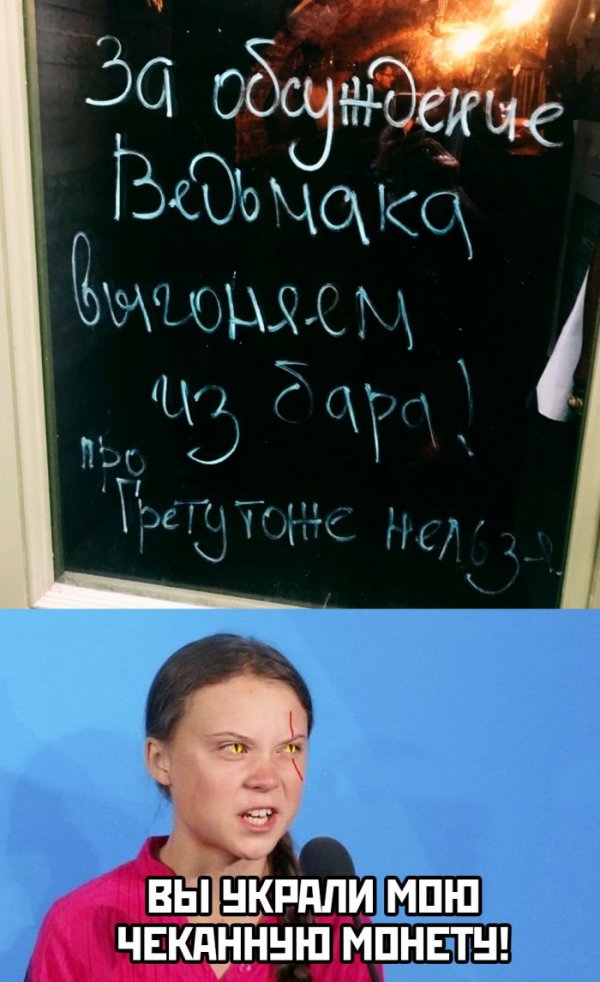 За обсуждение
Ведьмака
выгоняем
из бара!
про
Грету тоже нельзя.
ВЫ УКРАЛИ МОЮ
ЧЕКАННУЮ МОНЕТУ!